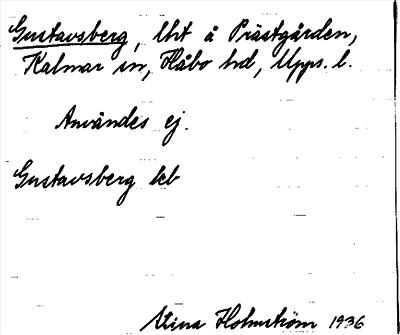 Gustavsberg, lht å Prästgården,
Kalmar sn, Håbo hd, Upps. l.
Användes ej.
Gustavsberg kb
Stina Holmström 1936